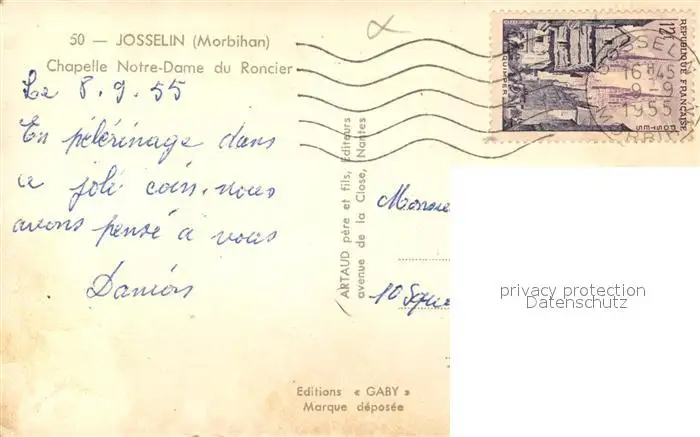 50 — JOSSELIN (Morbihan)
Chapelle Notre-Dame du Roncier
Le 8.9.55
En pèlérinage dans
ce joli coin. nous
avons pensé à vous
ARTAUD père et fils, Editeurs
avenue de la Close, Nantes
Editions « GABY »
Marque déposée
12F
REPUBLIQUE FRANÇAISE
POSTES
QUIMPER
JOSSELIN
16 H45
9-9
1955
MORBIHAN
10 Squa
privacy protection
Datenschutz